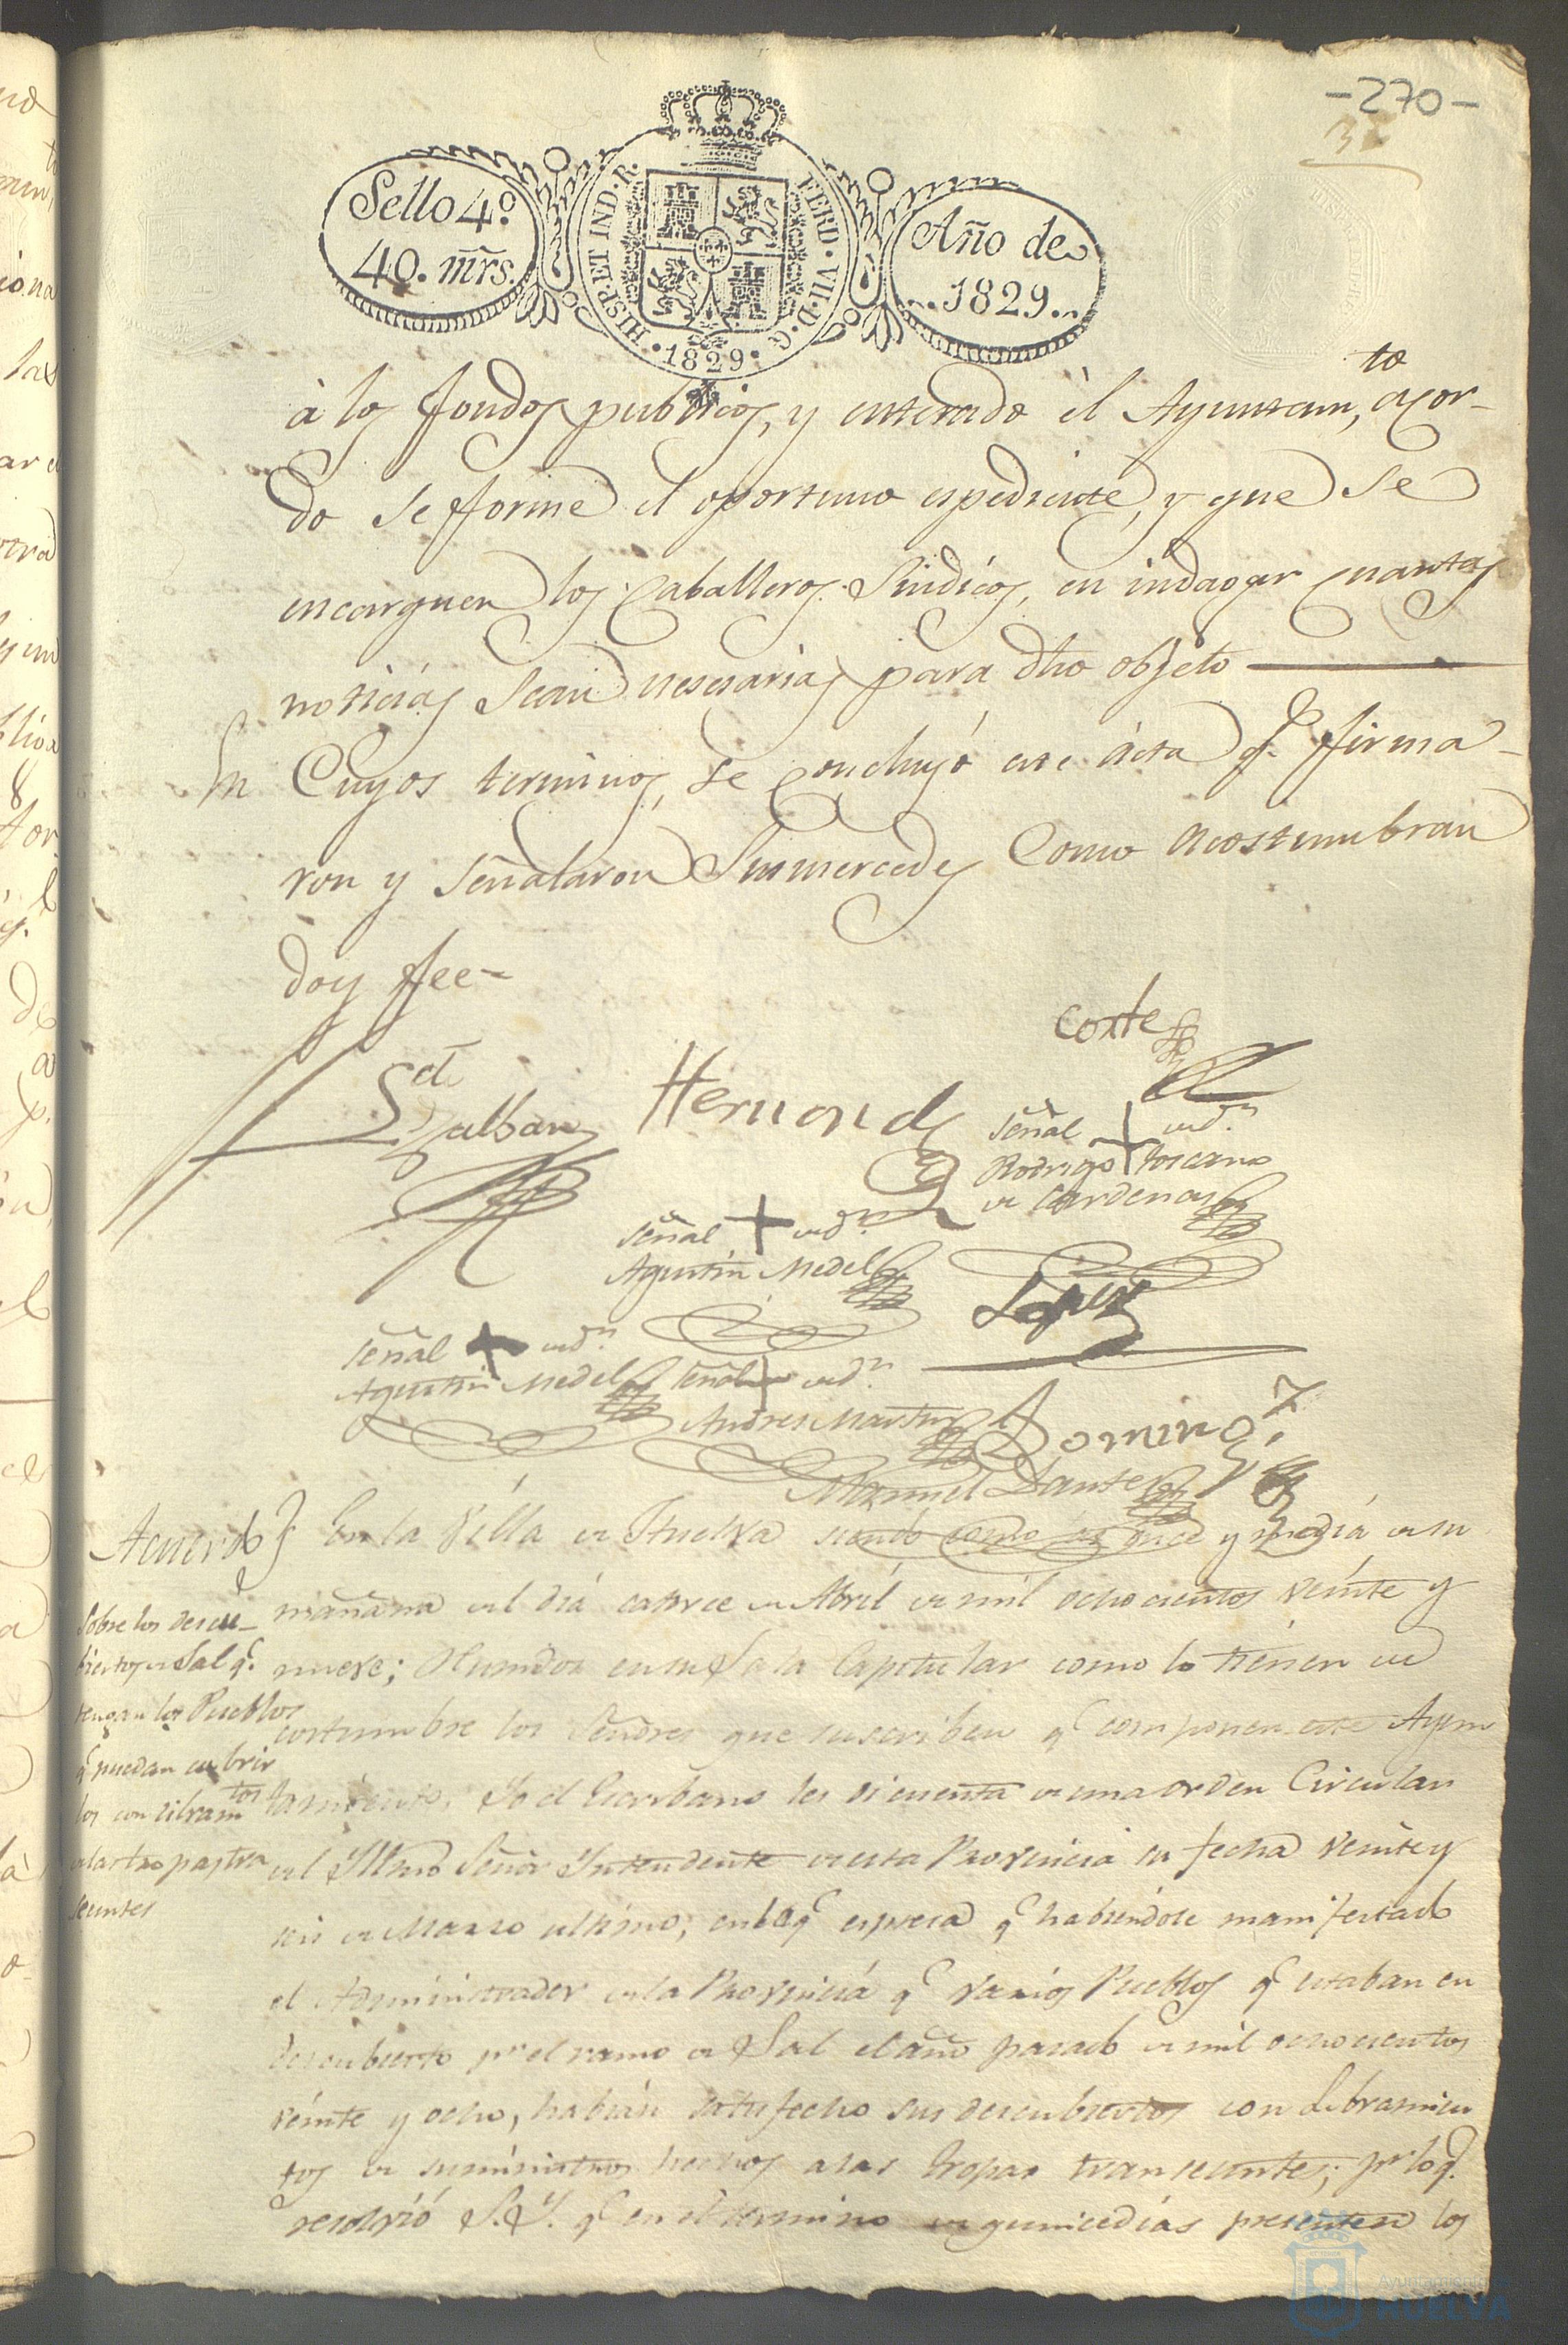 -270-
Sello 4º
40. mr̃s.
HISP. ET IND. R.
FERD. VII. D. G.
1829
Año de
1829
à los fondos publicos, y enterado èl Ayuntam,to acor-
do se forme el oportuno espediente, y que se
encarguen los Caballeros Sindicos, en indagar cuantas
noticias sean nesesarias para dho objeto
En Cuyos terminos, se concluyó este ácta q.e firma-
ron y señalaron Sus mercedes Como acostumbran
doy fee-
Cortes
Galban
Hernandz
señal + de Dn
Rodrigo Toscano
de Cardenas
señal + de Dn
Agustin Medel
Lopez
señal + de Dn
Agustin Medel
señal + de Dn
Andres Martin
Domingz
Manuel Dante
Acuerdo
Sobre los descu-
biertos de Sal q.e
tengan los Pueblos
q.e puedan cubrir
los con libram.tos
a las tropas tra
seuntes
En la Villa de Huelva siendo como las once y media de su
mañana del dia catorce de Abril de mil ochocientos veinte y
nueve; Reunidos en su Sala Capitular como lo tienen de
costumbre los Señores que suscriben q.e componen este Ayun
tamiento; Yo el Escribano les di cuenta de una orden Circular
del Yllmo Señor Yntendente de esta Provincia su fecha veinte y
seis de Marzo ultimo; en la q.e espresa q.e habiendole manifestado
el Administrador de la Provincia q.e varios Pueblos q.e estaban en
descubierto p.r el ramo de Sal el año pasado de mil ochocientos
veinte y ocho, habian satisfecho sus descubiertos con Libramien
tos de suministros hechos a las tropas transeuntes; p.r lo q.e
resolvió S.S.Y. q.e en el termino de quince dias presenten los
Ayuntamiento de
HUELVA